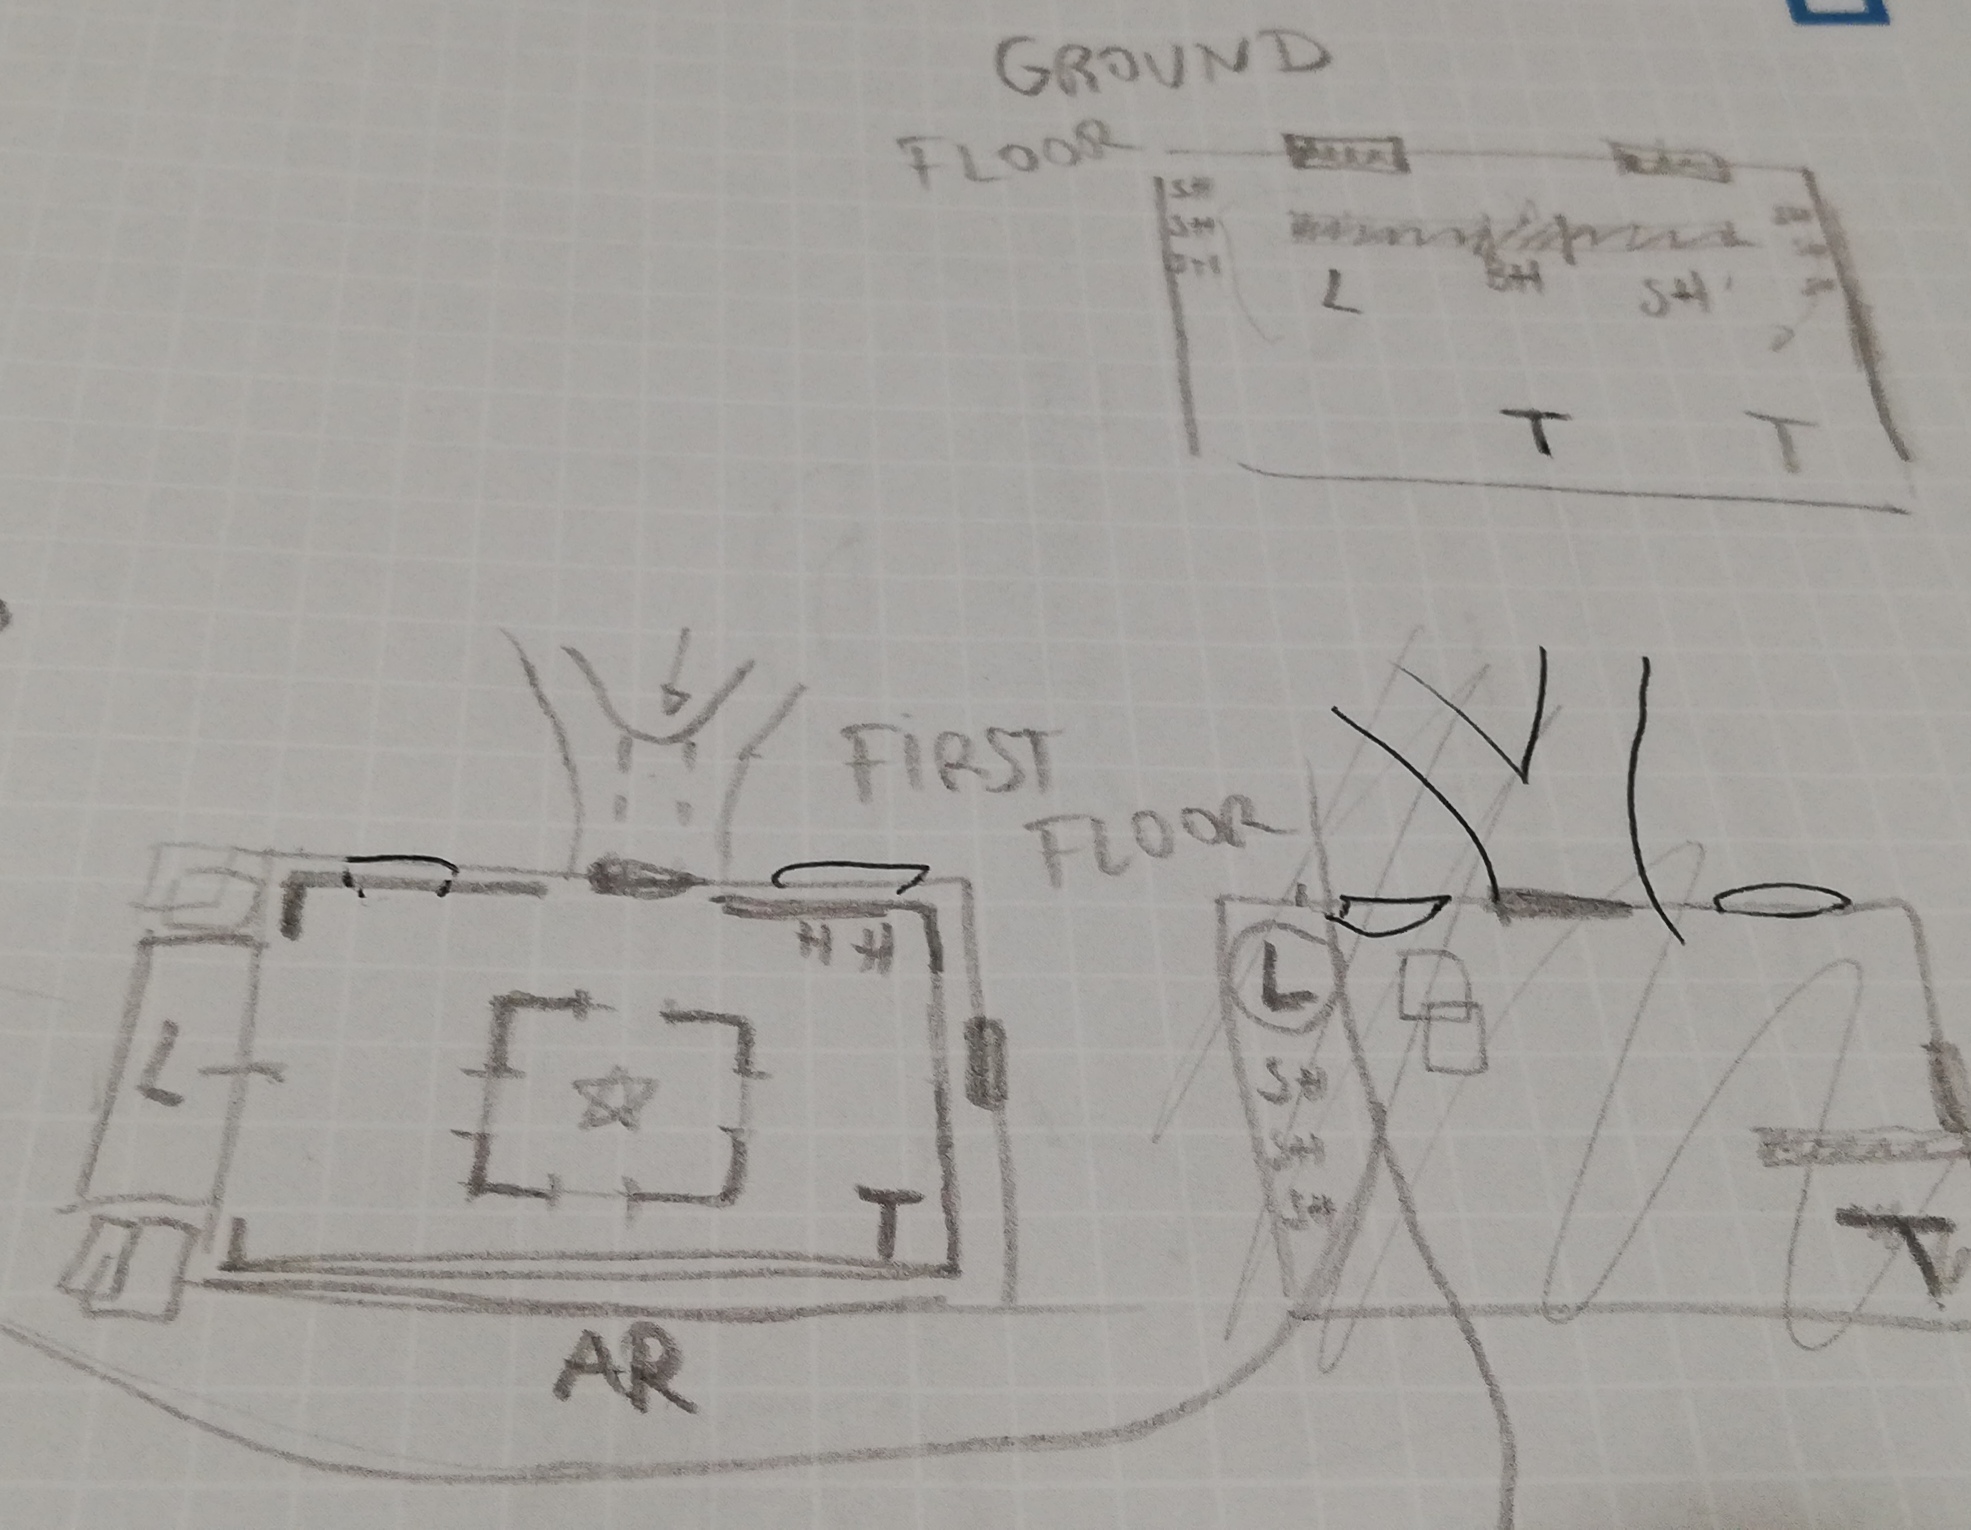 GROUND
FLOOR
SH
SH
SH
L SH SH
T T
FIRST
FLOOR
H H
L
L
SH
SH
SH
T
T
AR